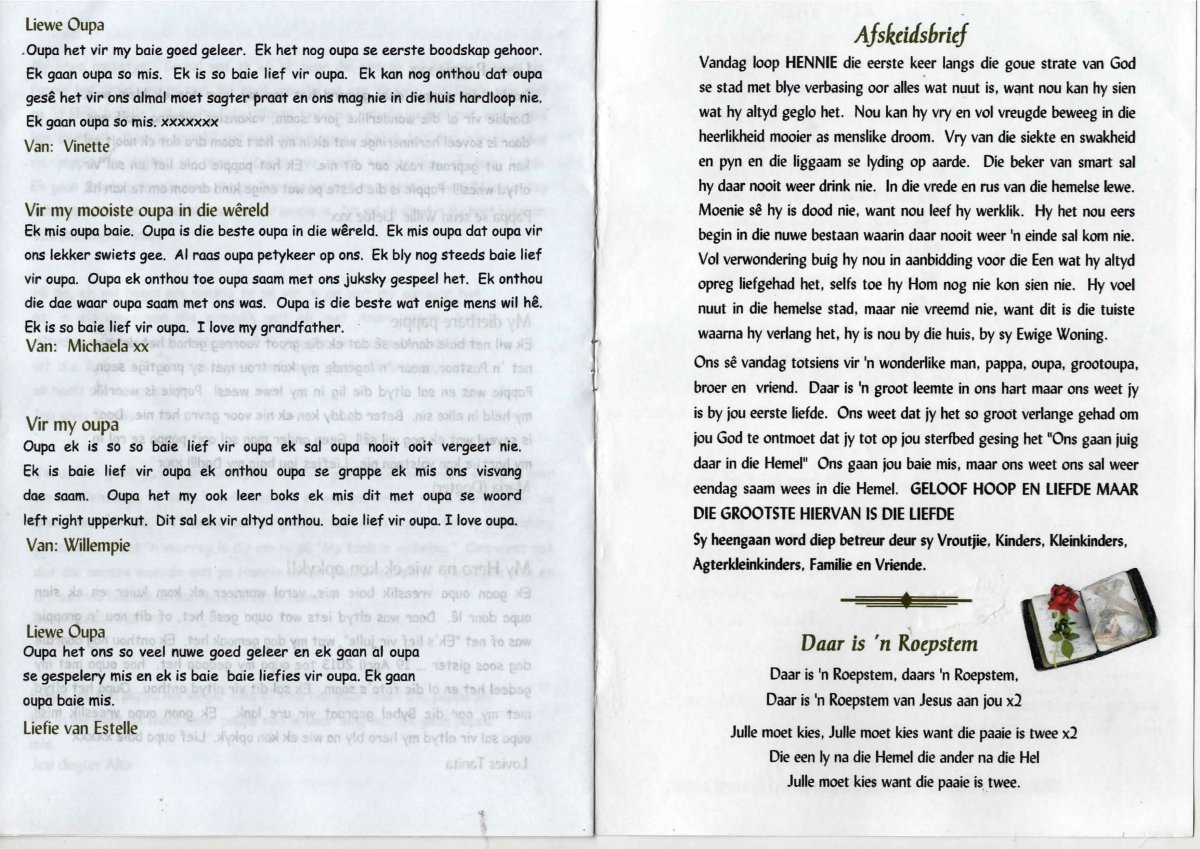 Liewe Oupa
Oupa het vir my baie goed geleer. Ek het nog oupa se eerste boodskap gehoor.
Ek gaan oupa so mis. Ek is so baie lief vir oupa. Ek kan nog onthou dat oupa
gesê het vir ons almal moet sagter praat en ons mag nie in die huis hardloop nie.
Ek gaan oupa so mis. xxxxxxxx
Van: Vinette
Vir my mooiste oupa in die wêreld
Ek mis oupa baie. Oupa is die beste oupa in die wêreld. Ek mis oupa dat oupa vir
ons lekker swiets gee. Al raas oupa petykeer op ons. Ek bly nog steeds baie lief
vir oupa. Oupa ek onthou toe oupa saam met ons juksky gespeel het. Ek onthou
die dae waar oupa saam met ons was. Oupa is die beste wat enige mens wil hê.
Ek is so baie lief vir oupa. I love my grandfather.
Van: Michaela xx
Vir my oupa
Oupa ek is so so baie lief vir oupa ek sal oupa nooit ooit vergeet nie.
Ek is baie lief vir oupa ek onthou oupa se grappe ek mis ons visvang
dae saam. Oupa het my ook leer boks ek mis dit met oupa se woord
left right upperkut. Dit sal ek vir altyd onthou. baie lief vir oupa. I love oupa.
Van: Willempie
Liewe Oupa
Oupa het ons so veel nuwe goed geleer en ek gaan al oupa
se gespelery mis en ek is baie baie liefies vir oupa. Ek gaan
oupa baie mis.
Liefie van Estelle
Afskeidsbrief
Vandag loop HENNIE die eerste keer langs die goue strate van God
se stad met blye verbasing oor alles wat nuut is, want nou kan hy sien
wat hy altyd geglo het. Nou kan hy vry en vol vreugde beweeg in die
heerlikheid mooier as menslike droom. Vry van die siekte en swakheid
en pyn en die liggaam se lyding op aarde. Die beker van smart sal
hy daar nooit weer drink nie. In die vrede en rus van die hemelse lewe.
Moenie sê hy is dood nie, want nou leef hy werklik. Hy het nou eers
begin in die nuwe bestaan waarin daar nooit weer 'n einde sal kom nie.
Vol verwondering buig hy nou in aanbidding voor die Een wat hy altyd
opreg liefgehad het, selfs toe hy Hom nog nie kon sien nie. Hy voel
nuut in die hemelse stad, maar nie vreemd nie, want dit is die tuiste
waarna hy verlang het, hy is nou by die huis, by sy Ewige Woning.
Ons sê vandag totsiens vir 'n wonderlike man, pappa, oupa, grootoupa,
broer en vriend. Daar is 'n groot leemte in ons hart maar ons weet jy
is by jou eerste liefde. Ons weet dat jy het so groot verlange gehad om
jou God te ontmoet dat jy tot op jou sterfbed gesing het "Ons gaan juig
daar in die Hemel" Ons gaan jou baie mis, maar ons weet ons sal weer
eendag saam wees in die Hemel. GELOOF HOOP EN LIEFDE MAAR
DIE GROOTSTE HIERVAN IS DIE LIEFDE
Sy heengaan word diep betreur deur sy Vroutjie, Kinders, Kleinkinders,
Agterkleinkinders, Familie en Vriende.
Daar is 'n Roepstem
Daar is 'n Roepstem, daars 'n Roepstem,
Daar is 'n Roepstem van Jesus aan jou x2
Julle moet kies, Julle moet kies want die paaie is twee x2
Die een ly na die Hemel die ander na die Hel
Julle moet kies want die paaie is twee.